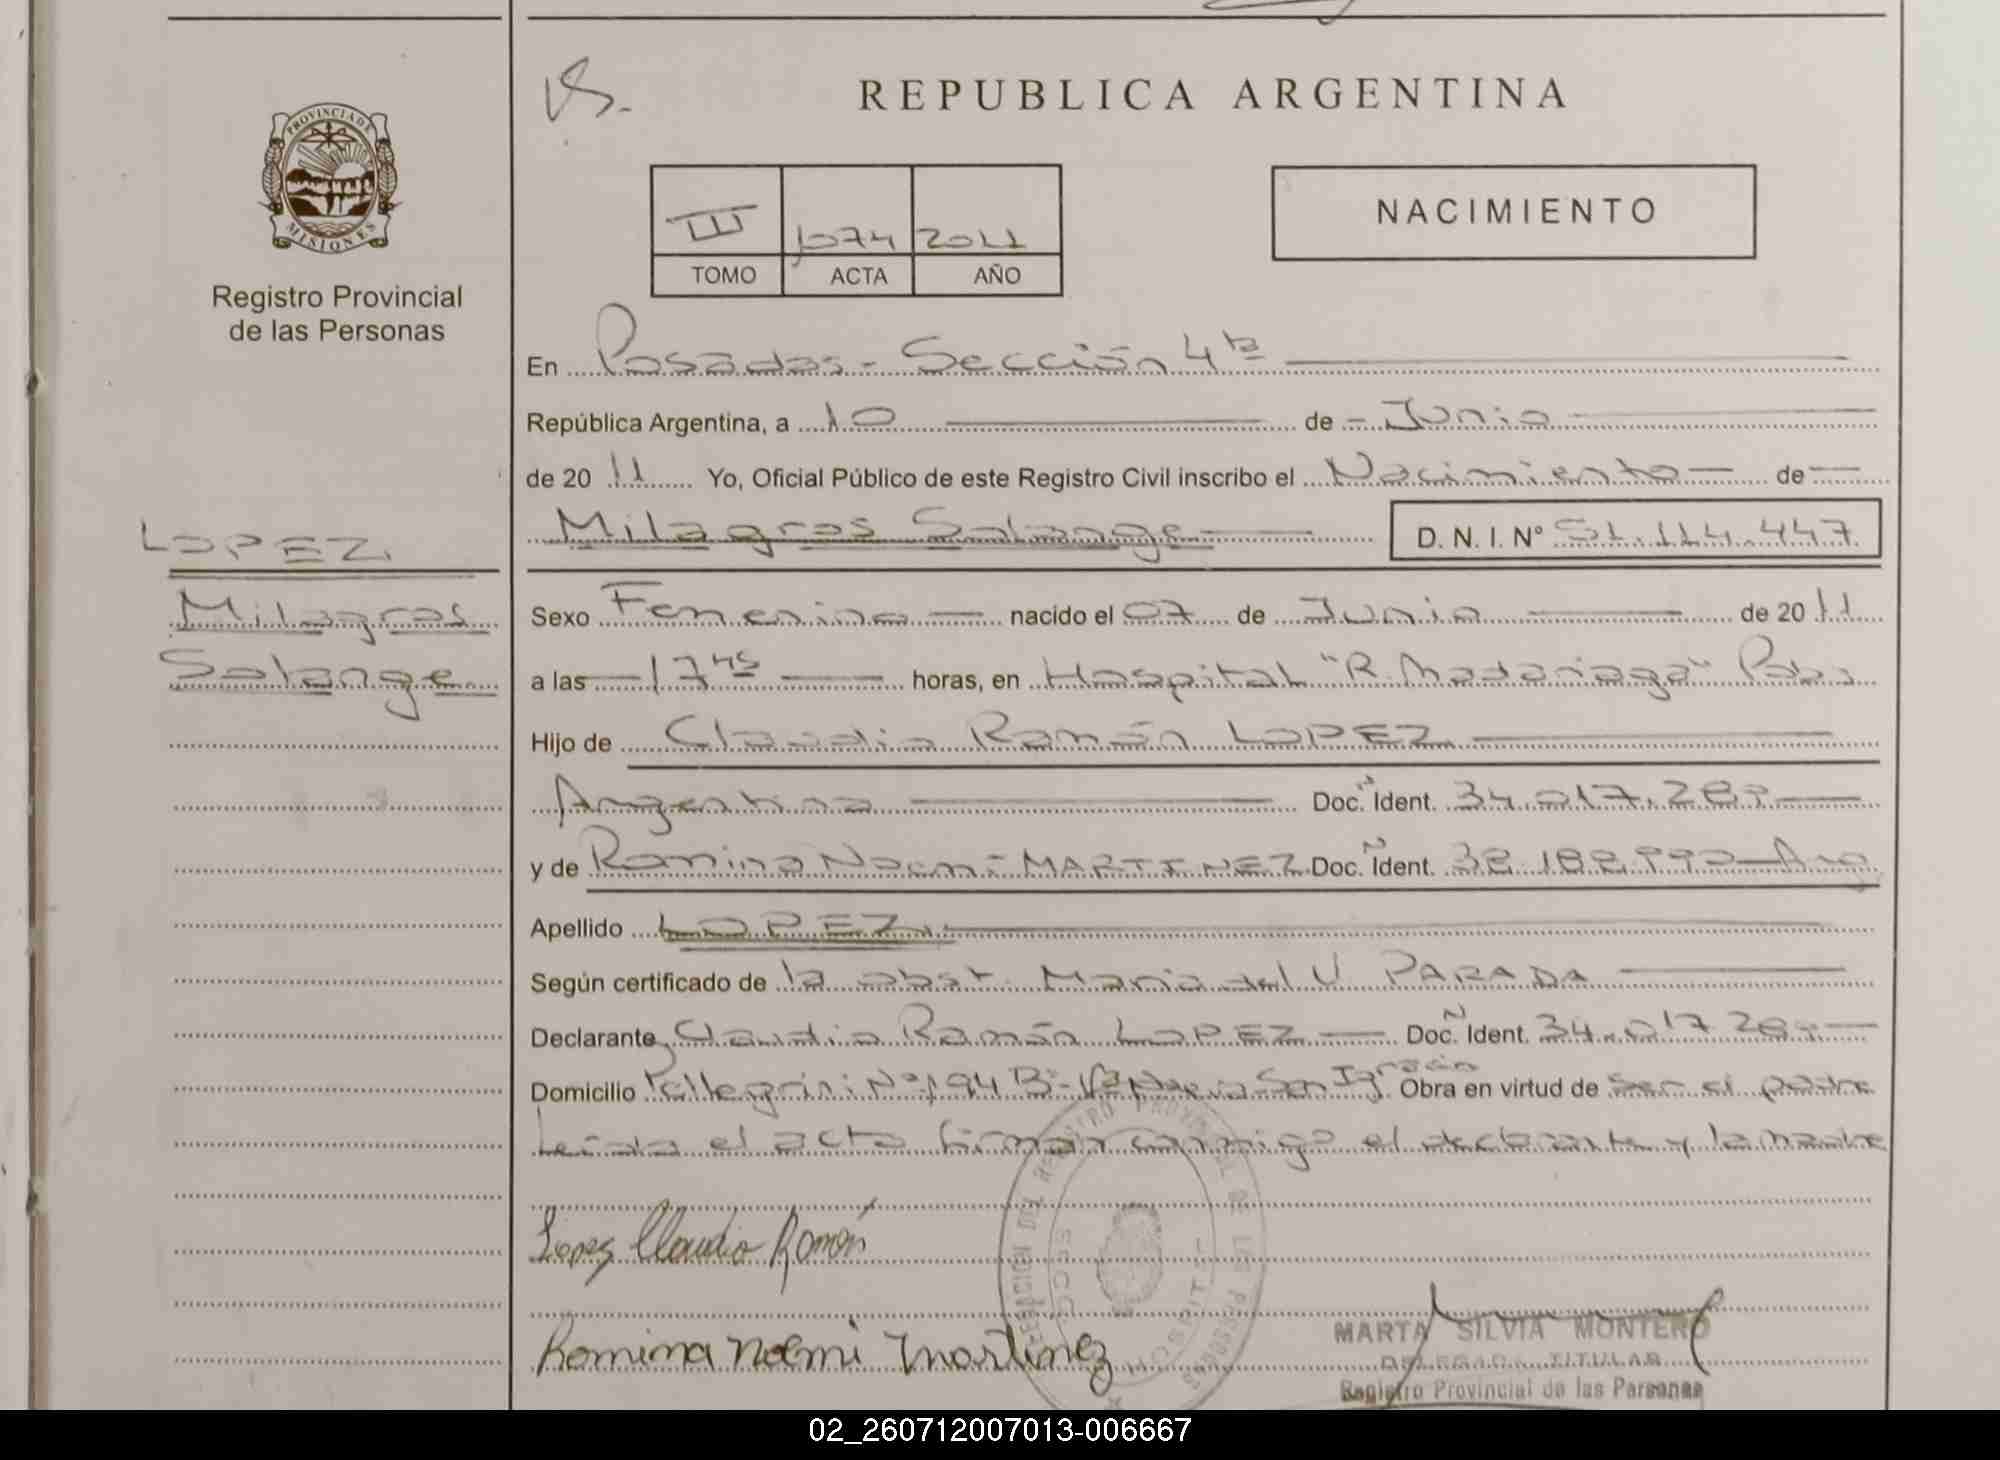 REPUBLICA ARGENTINA
PROVINCIA DE
MISIONES
Registro Provincial
de las Personas
NACIMIENTO
III 1074 2011
TOMO ACTA AÑO
En Posadas - Sección 4ta
República Argentina, a 10 de - Junio
de 20 11 Yo, Oficial Público de este Registro Civil inscribo el Nacimiento de
Milagros Solange D. N. I. Nº 51.114.447
LOPEZ
Milagros
Solange
Sexo Femenino nacido el 07 de Junio de 20 11
a las 17 45 horas, en Hospital "R. Madariaga" Pdas
Hijo de Claudio Ramón LOPEZ
Argentina Doc. Ident. 34.017.28
y de Romina Noemi MARTINEZ Doc. Ident. Arg
Apellido LOPEZ
Según certificado de la obst. Maria del V. PARADA
Declarante Claudio Ramón LOPEZ Doc. Ident. 34.017.28
Domicilio Pellegrini Nº 194 Bº Vª Nueva San Ignacio Obra en virtud de ser el padre
Leída el acta firman conmigo el declarante y la madre
Lopez Claudio Ramón
Romina Noemi Martinez
MARTA SILVIA MONTERO
DELEGADA TITULAR
Registro Provincial de las Personas
02_260712007013-006667